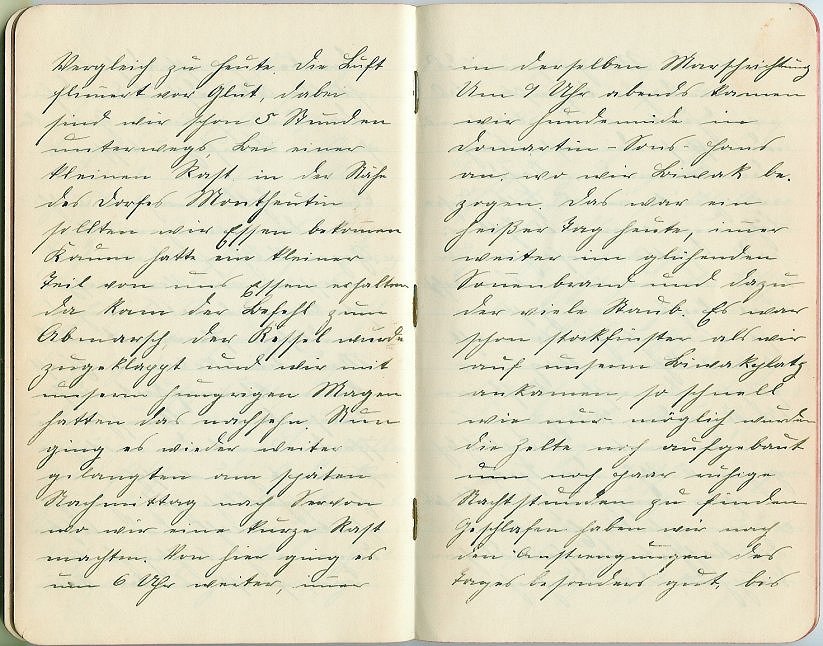 Vergleich zu heute. Die Luft
flimert vor Glut, dabei
sind wir schon 5 Stunden
unterwegs. Bei einer
kleinen Rast in der Nähe
des Dorfes Montheutin
sollten wir Essen bekomen
Kaum hatte ein kleiner
Teil von uns Essen erhalten
da kam der Befehl zum
Abmarsch der Kessel wurde
zugeklappt und wir mit
unserm hungrigen Magen
hatten das nachsehn. Nun
ging es wieder weiter
gelangten am späten
Nachmittag nach Servon
wo wir eine kurze Rast
machten. Von hier ging es
um 6 Uhr weiter, imer
in derselben Marschrichtung
Um 9 Uhr abends kamen
wir hundemüde in
Domartin-Sons-Hans
an, wo wir Biwak be-
zogen. Das war ein
heißer Tag heute, imer
weiter im glühenden
Sonenbrand und dazu
der viele Staub. Es war
schon stockfinster als wir
auf unserm Biwakplatz
ankamen, so schnell
wie nur möglich wurden
die Zelte noch aufgebaut
um noch paar ruhige
Nachtstunden zu finden
Geschlafen haben wir nach
den Anstrengungen des
Tages besonders gut, bis